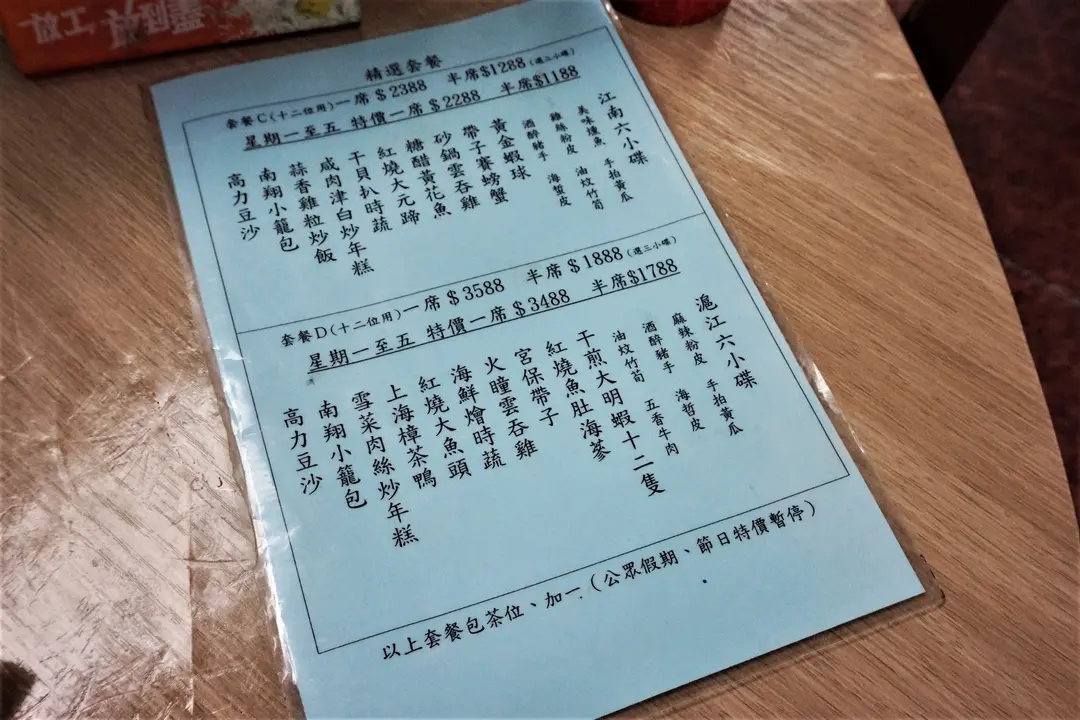 精選套餐
套餐C(十二位用)一席$2388 半席$1288(選三小碟)
星期一至五 特價一席$2288 半席$1188
江南六小碟
美味燻魚 手拍黃瓜
雞絲粉皮 油炆竹筍
酒醉豬手 海蜇皮
黃金蝦球
帶子賽螃蟹
砂鍋雲吞雞
糖醋黃花魚
紅燒大元蹄
干貝扒時蔬
咸肉津白炒年糕
蒜香雞粒炒飯
南翔小籠包
高力豆沙
套餐D(十二位用)一席$3588 半席$1888(選三小碟)
星期一至五 特價一席$3488 半席$1788
滬江六小碟
麻辣粉皮 手拍黃瓜
酒醉豬手 海哲皮
油炆竹筍 五香牛肉
干煎大明蝦十二隻
紅燒魚肚海蔘
宮保帶子
火瞳雲吞雞
海鮮燴時蔬
紅燒大魚頭
上海樟茶鴨
雪菜肉絲炒年糕
南翔小籠包
高力豆沙
以上套餐包茶位、加一(公眾假期、節日特價暫停)